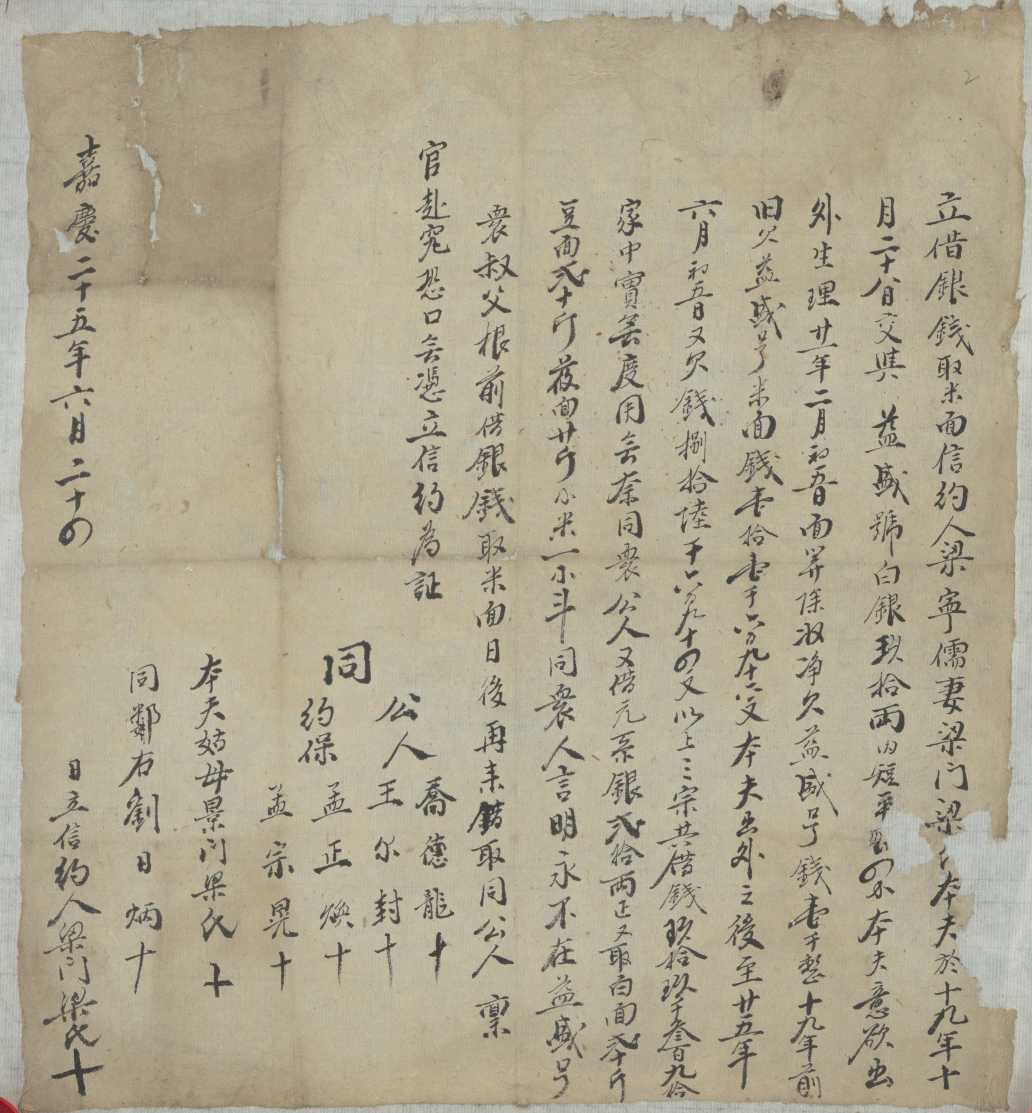 立借銀錢取米面信約人梁寧儒妻梁门梁氏本夫於十九年十
月二十八日交與 益盛號白銀玖拾兩内短平本夫意欲出
外生理廿一年二月初五日面筭除收净欠益盛号錢壹千整十九年前
旧欠益盛号米面錢壹拾壹千六百九十六文本夫出外之後至廿五年
六月初五日又欠錢捌拾陸千六百九十四文以上三宗共借錢玖拾玖千叁百九拾
家中實無度用無奈同衆公人又借元系銀弍拾両正又取白面弍十斤
豆面弍十斤莜面廿斤小米一小斗同衆人言明永不在益盛号
衆叔父根前借銀錢取米面日後再来借取同公人 稟
官赴究恐口無憑立信約為証
同
公人
喬德龍十
王尔封十
約保
孟正煥十
孟宗晃十
本夫姑母景门梁氏十
同鄰右劉日炳十
嘉慶二十五年六月二十四
日立信約人梁门梁氏十